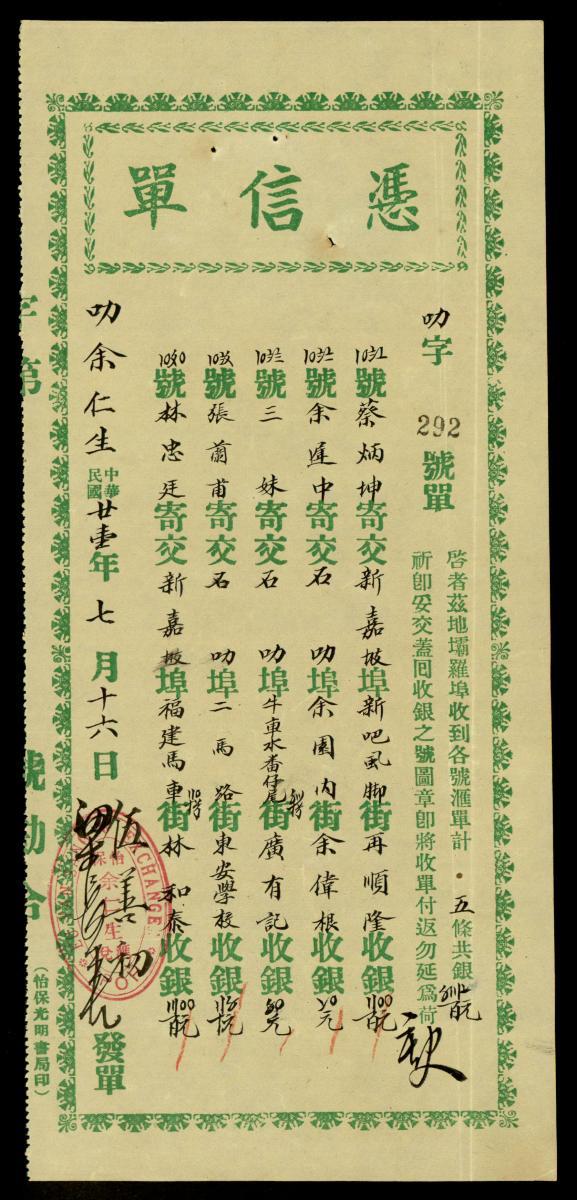 憑信單
叻字 292 號單
啓者茲地壩羅埠收到各號滙單計五條共銀
祈即妥交蓋回收銀之號圖章即將收單付返勿延爲荷
號蔡炳坤寄交新嘉坡埠新吧虱脚街再順隆收銀
號余蓮中寄交石叻埠余園內街余偉根收銀
號三妹寄交石叻埠牛車水畨仔尾街廣有記收銀
號張蕳甫寄交石叻埠二馬路街東安學校收銀
號林忠廷寄交新嘉坡埠福建馬車街林和泰收銀
叻余仁生
中華民國廿壹年七月十六日
伍善初
發單
EXCHANGE
怡保
余仁生
滙兌
字第
號勘合
(怡保光明書局印)